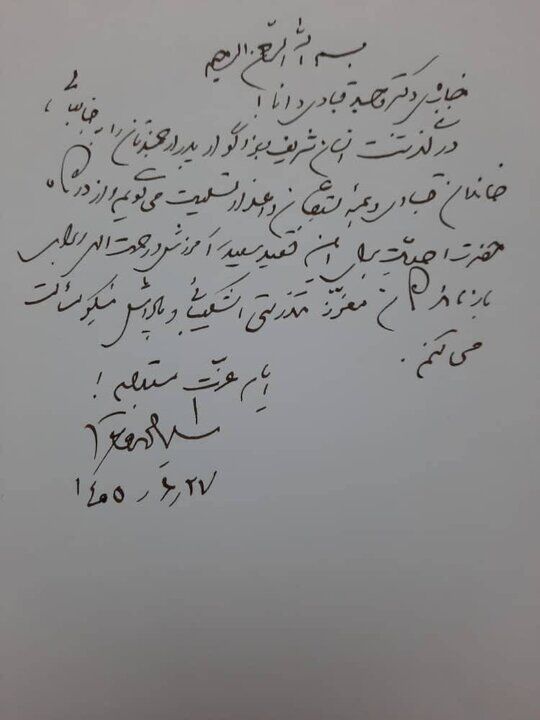 بسم الله الرحمن الرحیم
جناب آقای دکتر وحید قبادی دانا!
درگذشت انسان شریف و بزرگوار پدر ارجمندتان را به جنابعالی،
خاندان قبادی و همه داغدار تسلیت می‌گویم و از درگاه
حضرت احدیت برای این فقید سعید آمرزش و رحمت الهی و برای
بازماندگان معزز تندرستی، شکیبائی و پاداش نیکو مسألت
می‌کنم.
ایام عزت مستدام!
۱۴۰۵ ر ۶ ر ۲۷